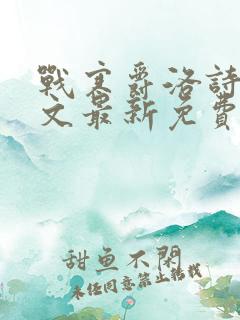 戰寒爵洛詩
文最新免費
甜魚不閃
未經同意禁止轉載